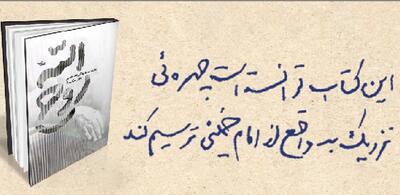 این کتاب توانسته است چهره‌ئی
نزدیک به واقع از امام خمینی ترسیم کند